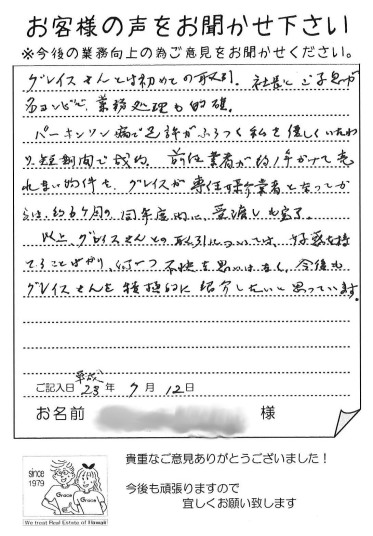 お客様の声をお聞かせ下さい
※今後の業務向上の為ご意見をお聞かせください。
グレイスさんとは初めての取引。社長とご子息が
名コンビで、業務処理も的確。
パーキンソン病で足許がふらつく私を優しくいたわ
り、短期間で成約、前任業者が約1年かけて売
れない物件を、グレイスが専任媒介業者となってか
らは、約6ヶ月の同年度内に、受渡しも完了。
以上、グレイスさんとの取引については、好感を持
てることばかり、何一つ不快な思いはなく、今後も
グレイスさんを積極的に紹介したいと思っています。
ご記入日 平成23年 7月 12日
お名前 様
since
1979
Grace
Grace
We treat Real Estate of Hawaii
貴重なご意見ありがとうございました！
今後も頑張りますので
宜しくお願い致します